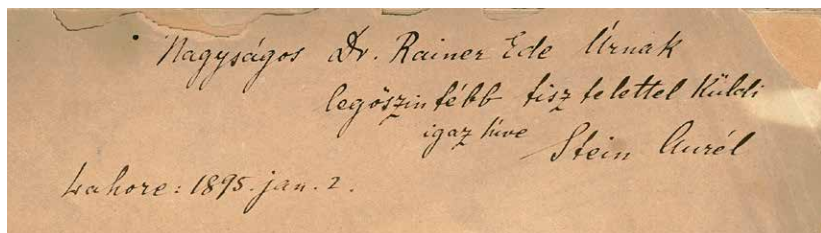 Nagyságos Dr. Rainer Ede Úrnak
legőszintébb tisztelettel küldi
igaz híve
Stein Aurél
Lahore: 1895. jan. 2.